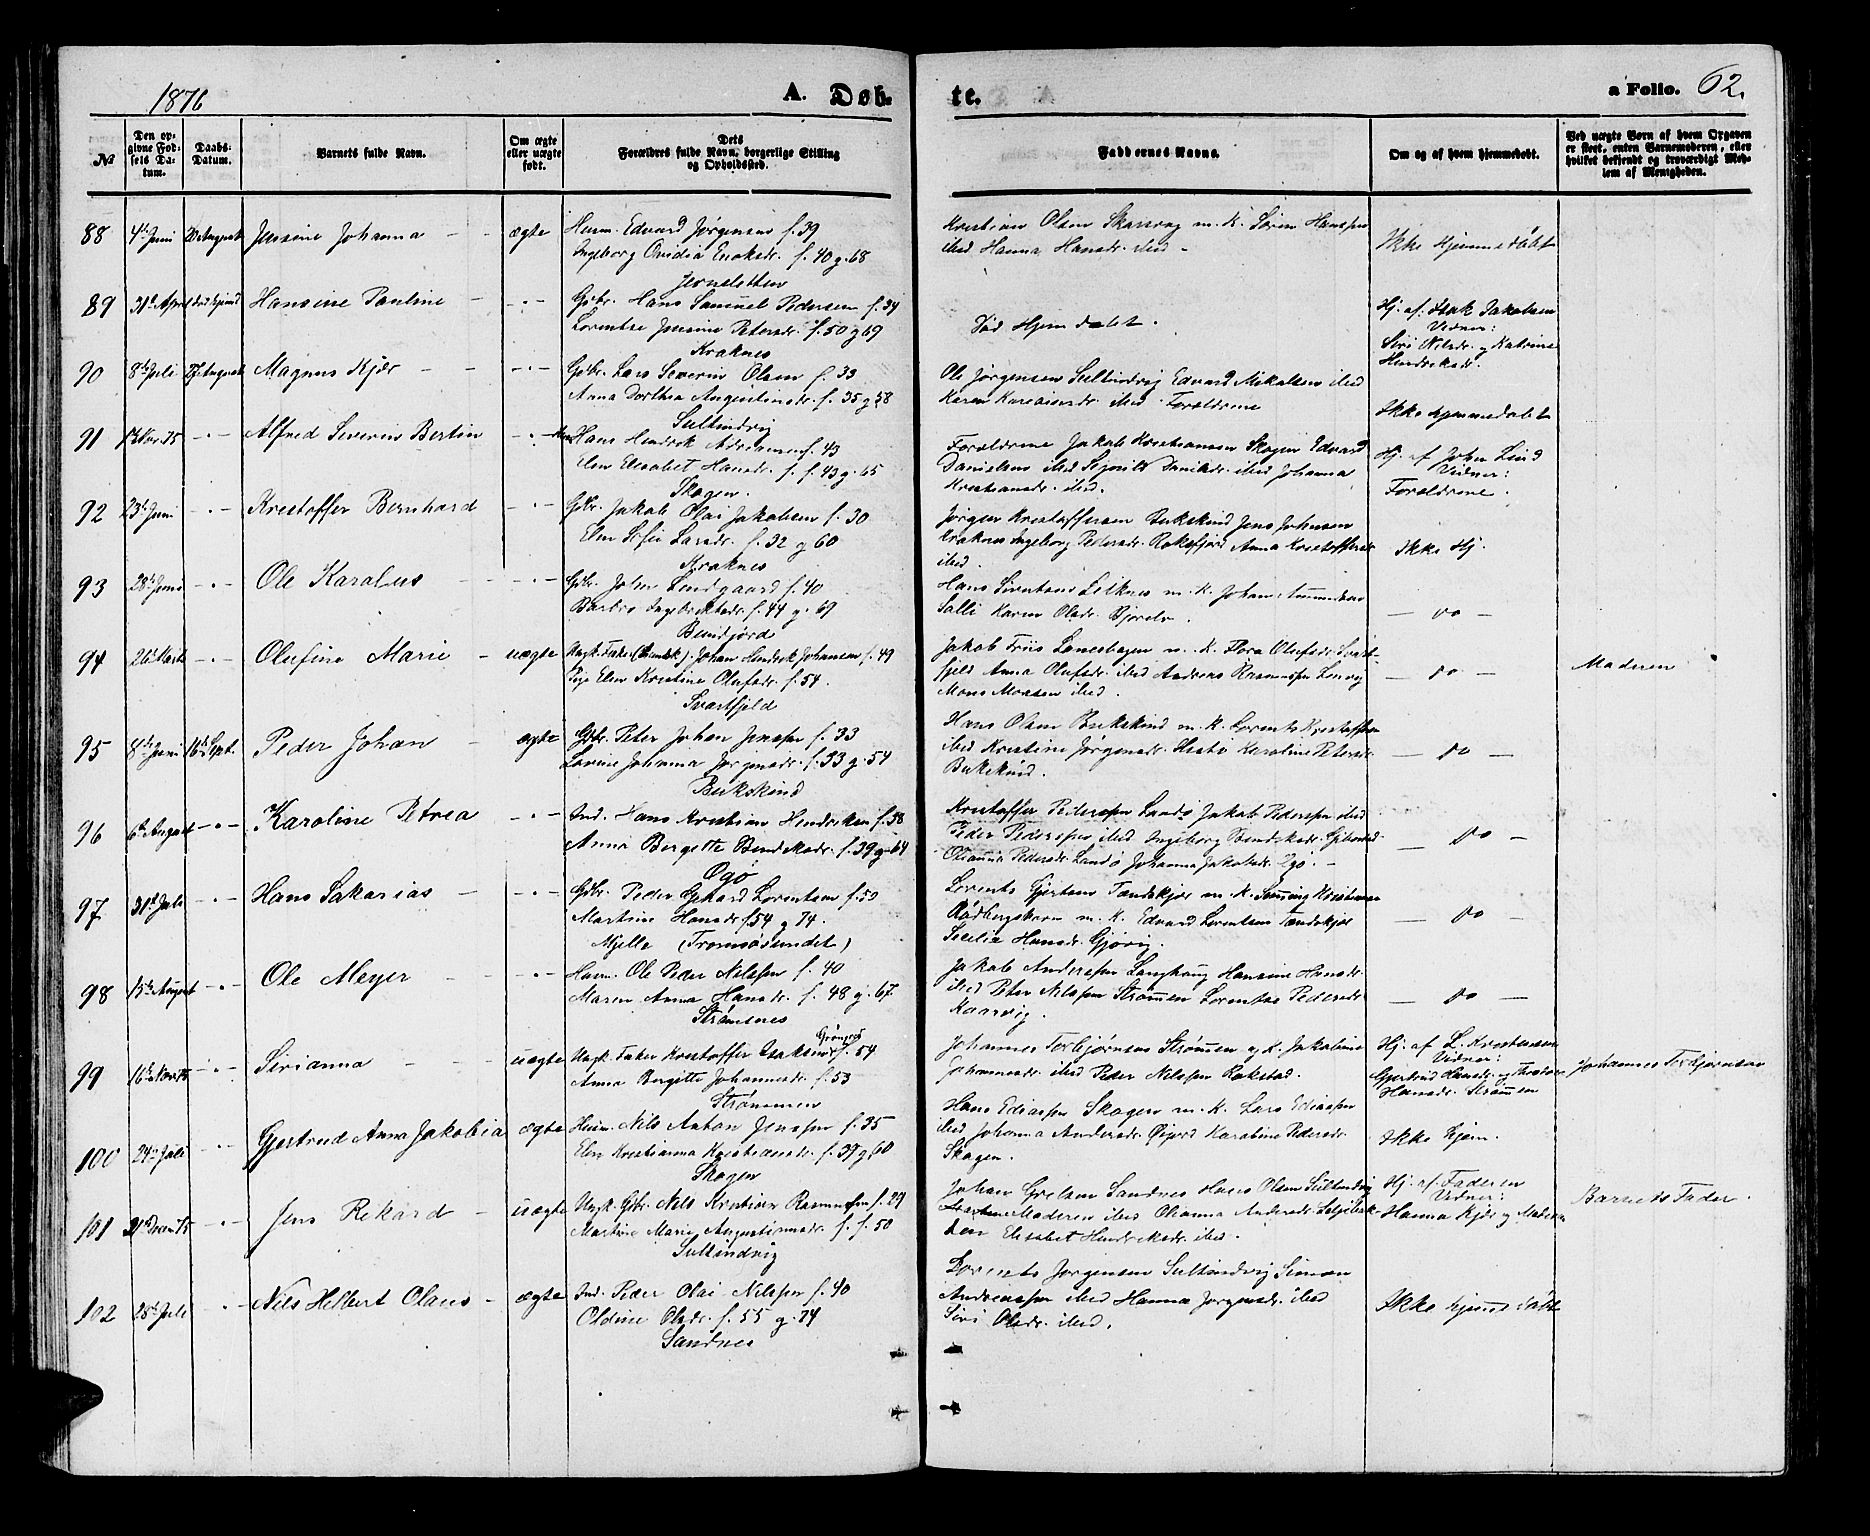 1876
A. Døb-
te.
a Folio. 62.
№
Den op-
givne Fød-
sels Da-
tum.
Daabs-
Datum.
Barnets fulde Navn.
Om ægte
eller uægte
født.
Dets
Forældres fulde Navn, borgerlige Stilling
og Opholdssted.
Faddernes Navne.
Om og af hvem hjemmedøbt.
Ved uægte Børn af hvem Opgaven
er skeet, enten Barnemoderen, eller
hvilket bekjendt og troværdigt Med-
lem af Menigheden.
88 4de Juni August Jensine Johanna - - ægte Huusm. Edvard Jørgensen f. 39
Ingeborg Ovidia Enoksdr. f. 40 g. 68
Jernsletten
Kristian Olsen Skarsvog m. K. Søren Hanssen
ibid Hanna Hansdr. ibid -
Ikke hjemmedøbt
89 April Hansine Pauline - - " - Gbr. Hans Samuel Pedersen f. 34
Lorentse Jensine Petersdr. f. 50 g 69
Kraknes
Død Hjemdøbt.
Hj. af. Isak Jakobsen
Vidner:
Siri Nilsdr. og Katrine
Hendriksdr.
90 8de Juli August Magnus Kjær - - - " - Gbr. Lars Severin Olsen f. 33
Anna Dorthea Augustinusdr. f. 35 g 58
Sultindvig
Ole Jørgensen Sultindvig Edvard Mikalsen ibid
Karen ibid. Forældrene
Ikke hjemmedøbt
91 Nov. 75 - " - Alfred Severin Bertin - " - Hans Hendrik Adriansen f. 43
Elen Elisabet Hansdr. f. f. 43 g. 65
Skogen.
Forældrene Jakob Kristiansen Skogen Edvard
Danielsen ibid Danielsdr. ibid Johanna
Kristiansdr. ibid.
Hj. af John Lind
Vidner:
Forældrene.
92 23de Juni - " - Kristoffer Bernhard - " - Gbr. Jakob Olai Jakobsen f. 30
Elen Sofie Larsdr. f. 32 g 60
Kraknes
Jørgen Kristoffersen Bukskind Jens Johnsen
Kraknes Ingeborg Pedersdr. Rakfjord Anna Kristoffersdr.
ibid.
Ikke Hj.
93 28de Juni - " - Ole Karolus - " - Gbr. Johan Lindgaard f. 40
Barbro Ingebriktsdr. f. 44 g. 69
Bensjord
Hans Sivertsen m. K. Johan
Salli Karen Olsdr. .
- do -
94 26de Marts - " - Olufine Marie - uægte Ungk. Johan Hendrik Johansen f. 49
Pige Elen Kristine Olufsdr. f. 54.
Svartfjeld
Jakob Friis m. K. Flora Olufsdr. Svart-
fjeld Anna Olufsdr. ibid Andreas Rasmussen
Mons Monsen ibid.
- do - Moderen
95 8de Juni 16de Sept. Peder Johan - ægte Gbr. Peter Johan Jenssen f. 33
Lovise Johanna Jørgensdr. f. 33 g. 54
Bukskind
Hans Olsen Bukskind m. K. Lorents Kristoffersen
ibid Kristine Jørgensdr. Karoline Petersdr.
Bukskind.
- do -
96 6te August - " - Karoline Petrea - " - Ind. Hans Kristian Hendriksen f. 38
Anna Bergitte Bendiksdr. f. 39 g. 64
Ogø
Kristoffer Pederssen Sandø Jakob Pederssen ibid
Peder Pederssen ibid Ingeborg Bendiksdr. Gibostad
Olianna Pedersdr. Sandø Johanna Jakobsdr. Ogø. -
- do -
97 31de Juli - " - Hans Sakarias - - " - Gbr. Peder Gjekard Lorentsen f. 50
Martine Hansdr. f. 54 g 74.
Mjelle (Tromsøsundet)
Lorents Gjertsen Tændskjær m. K. Kristiansen
Rødbergshavn m. K. Edvard Lorentsen Tændskjær
Secilie Hansdr. Gjøvig.
- do -
98 15de August - " - Ole Meyer - - " - Huusm. Ole Peder Nilssen f. 40
Maren Anna Hansdr. f. 48 g. 67
Strømsnes
Jakob Anderssen Langhaug Hansine Hansdr.
ibid Peter Nilssen Strømmen Lorentse Pedersdr.
Kaarvig.
- do -
99 16de Nov 75 - " - Sirianna - - uægte Ungk. Fisker Kristoffer Isaksen Grønjord f. 54
Anna Bergitte Johannesdr. f. 53
Strømmen
Johannes Torbjørnsen Strømmen og K. Jakobine
Johannesdr. ibid Peder Nilssen Rakstad.
Hj. af L. Kristiansen
Vidner:
Gjertrud Hansdr. og
Hansdr. Strømmen
Johannes Torbjørnsen
100 24de Juli - " - Gjertrud Anna Jakobia ægte Huusm. Nils Anton Jenssen f. 35
Elen Kristianna Kristiansdr. f. 37 g. 60
Skogen
Hans Ediassen Skogen m. K. Lars Ediassen
ibid Johanna Andersdr. Øijord Karoline Pedersdr.
Skogen.
Ikke hjem.
101 Decem 75 - " - Jens Rekard - uægte Ungk. Gbr. Nils Kristian Rasmussen f. 29
Martine Marie Augustinusdr. f. f. 50
Sultindvig
Johan Grelsen Sandnes Hans Olsen Sultindvig
Moderen ibid Olianna Andersdr. Selfelbak-
ken Elisabet Hendriksdr. ibid.
Hj. af. Faderen
Vidner:
Hanna Kjær og Moderen
Barnets Fader.
102 28de Juli - " - Nils Helbert Olaus - ægte Ind. Peder Olai Nilssen f. 40
Oldine Olsdr. f. 55 g. 74
Sandnes
Lorents Jørgensen Sultindvig Simon
Andreassen ibid Hanna Jørgensdr. ibid
Siri Olsdr. ibid.
Ikke hjemmedøbt